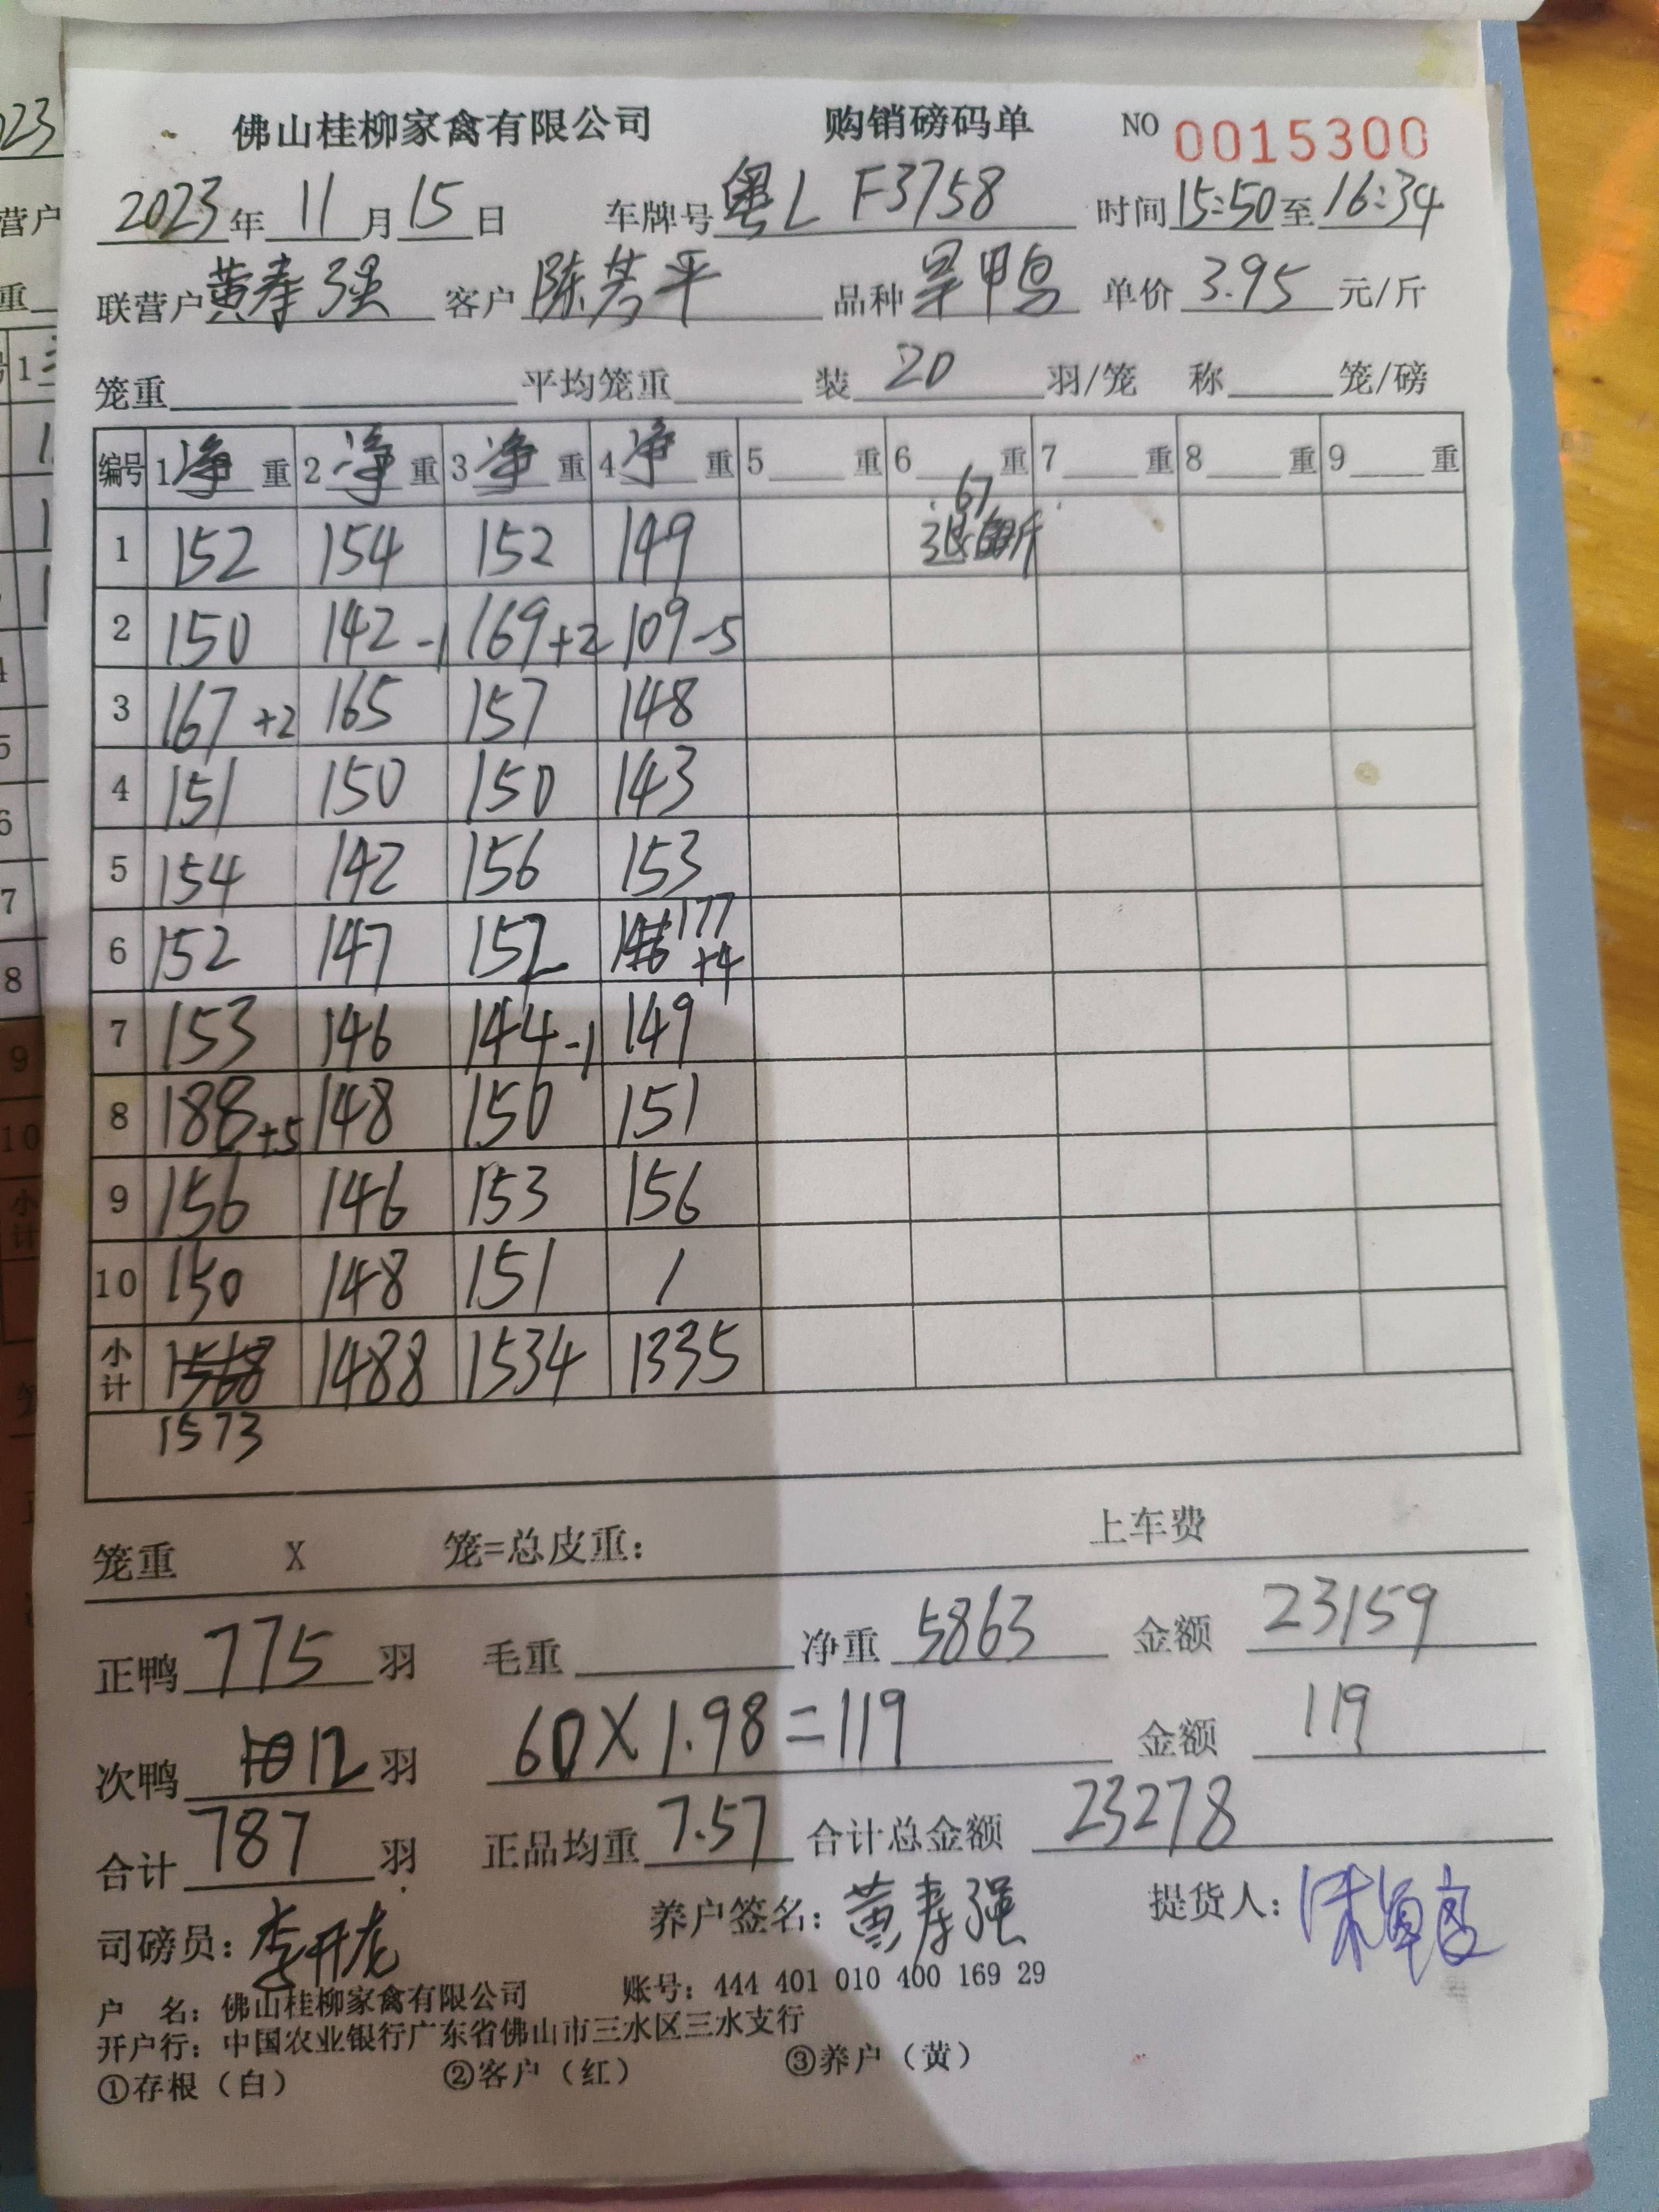 佛山桂柳家禽有限公司 购销磅码单 NO 0015300
2023年 11月15日 车牌号粤L F3758 时间15:50至16:34
联营户黄寿强 客户陈芳平 品种旱鸭 单价3.95元/斤
笼重 平均笼重 装20羽/笼 称 笼/磅
编号 1净重 2净重 3净重 4净重 5重 6重 7重 8重 9重
67
1 152 154 152 149 退 斤
2 150 142-1 169+2 109-5
3 167+2 165 157 148
4 151 150 150 143
5 154 142 156 153
6 152 147 152 177+4
7 153 146 144-1 149
8 188+5 148 150 151
9 156 146 153 156
10 150 148 151 /
小计 1568 1488 1534 1335
1573
笼重 X 笼=总皮重: 上车费
正鸭775羽 毛重 净重5863 金额23159
次鸭 10 12羽 60X1.98=119 金额119
合计787羽 正品均重7.57 合计总金额23278
司磅员:李开龙 养户签名:黄寿强 提货人:
户 名:佛山桂柳家禽有限公司 账号:444 401 010 400 169 29
开户行:中国农业银行广东省佛山市三水区三水支行
①存根（白） ②客户（红） ③养户（黄）